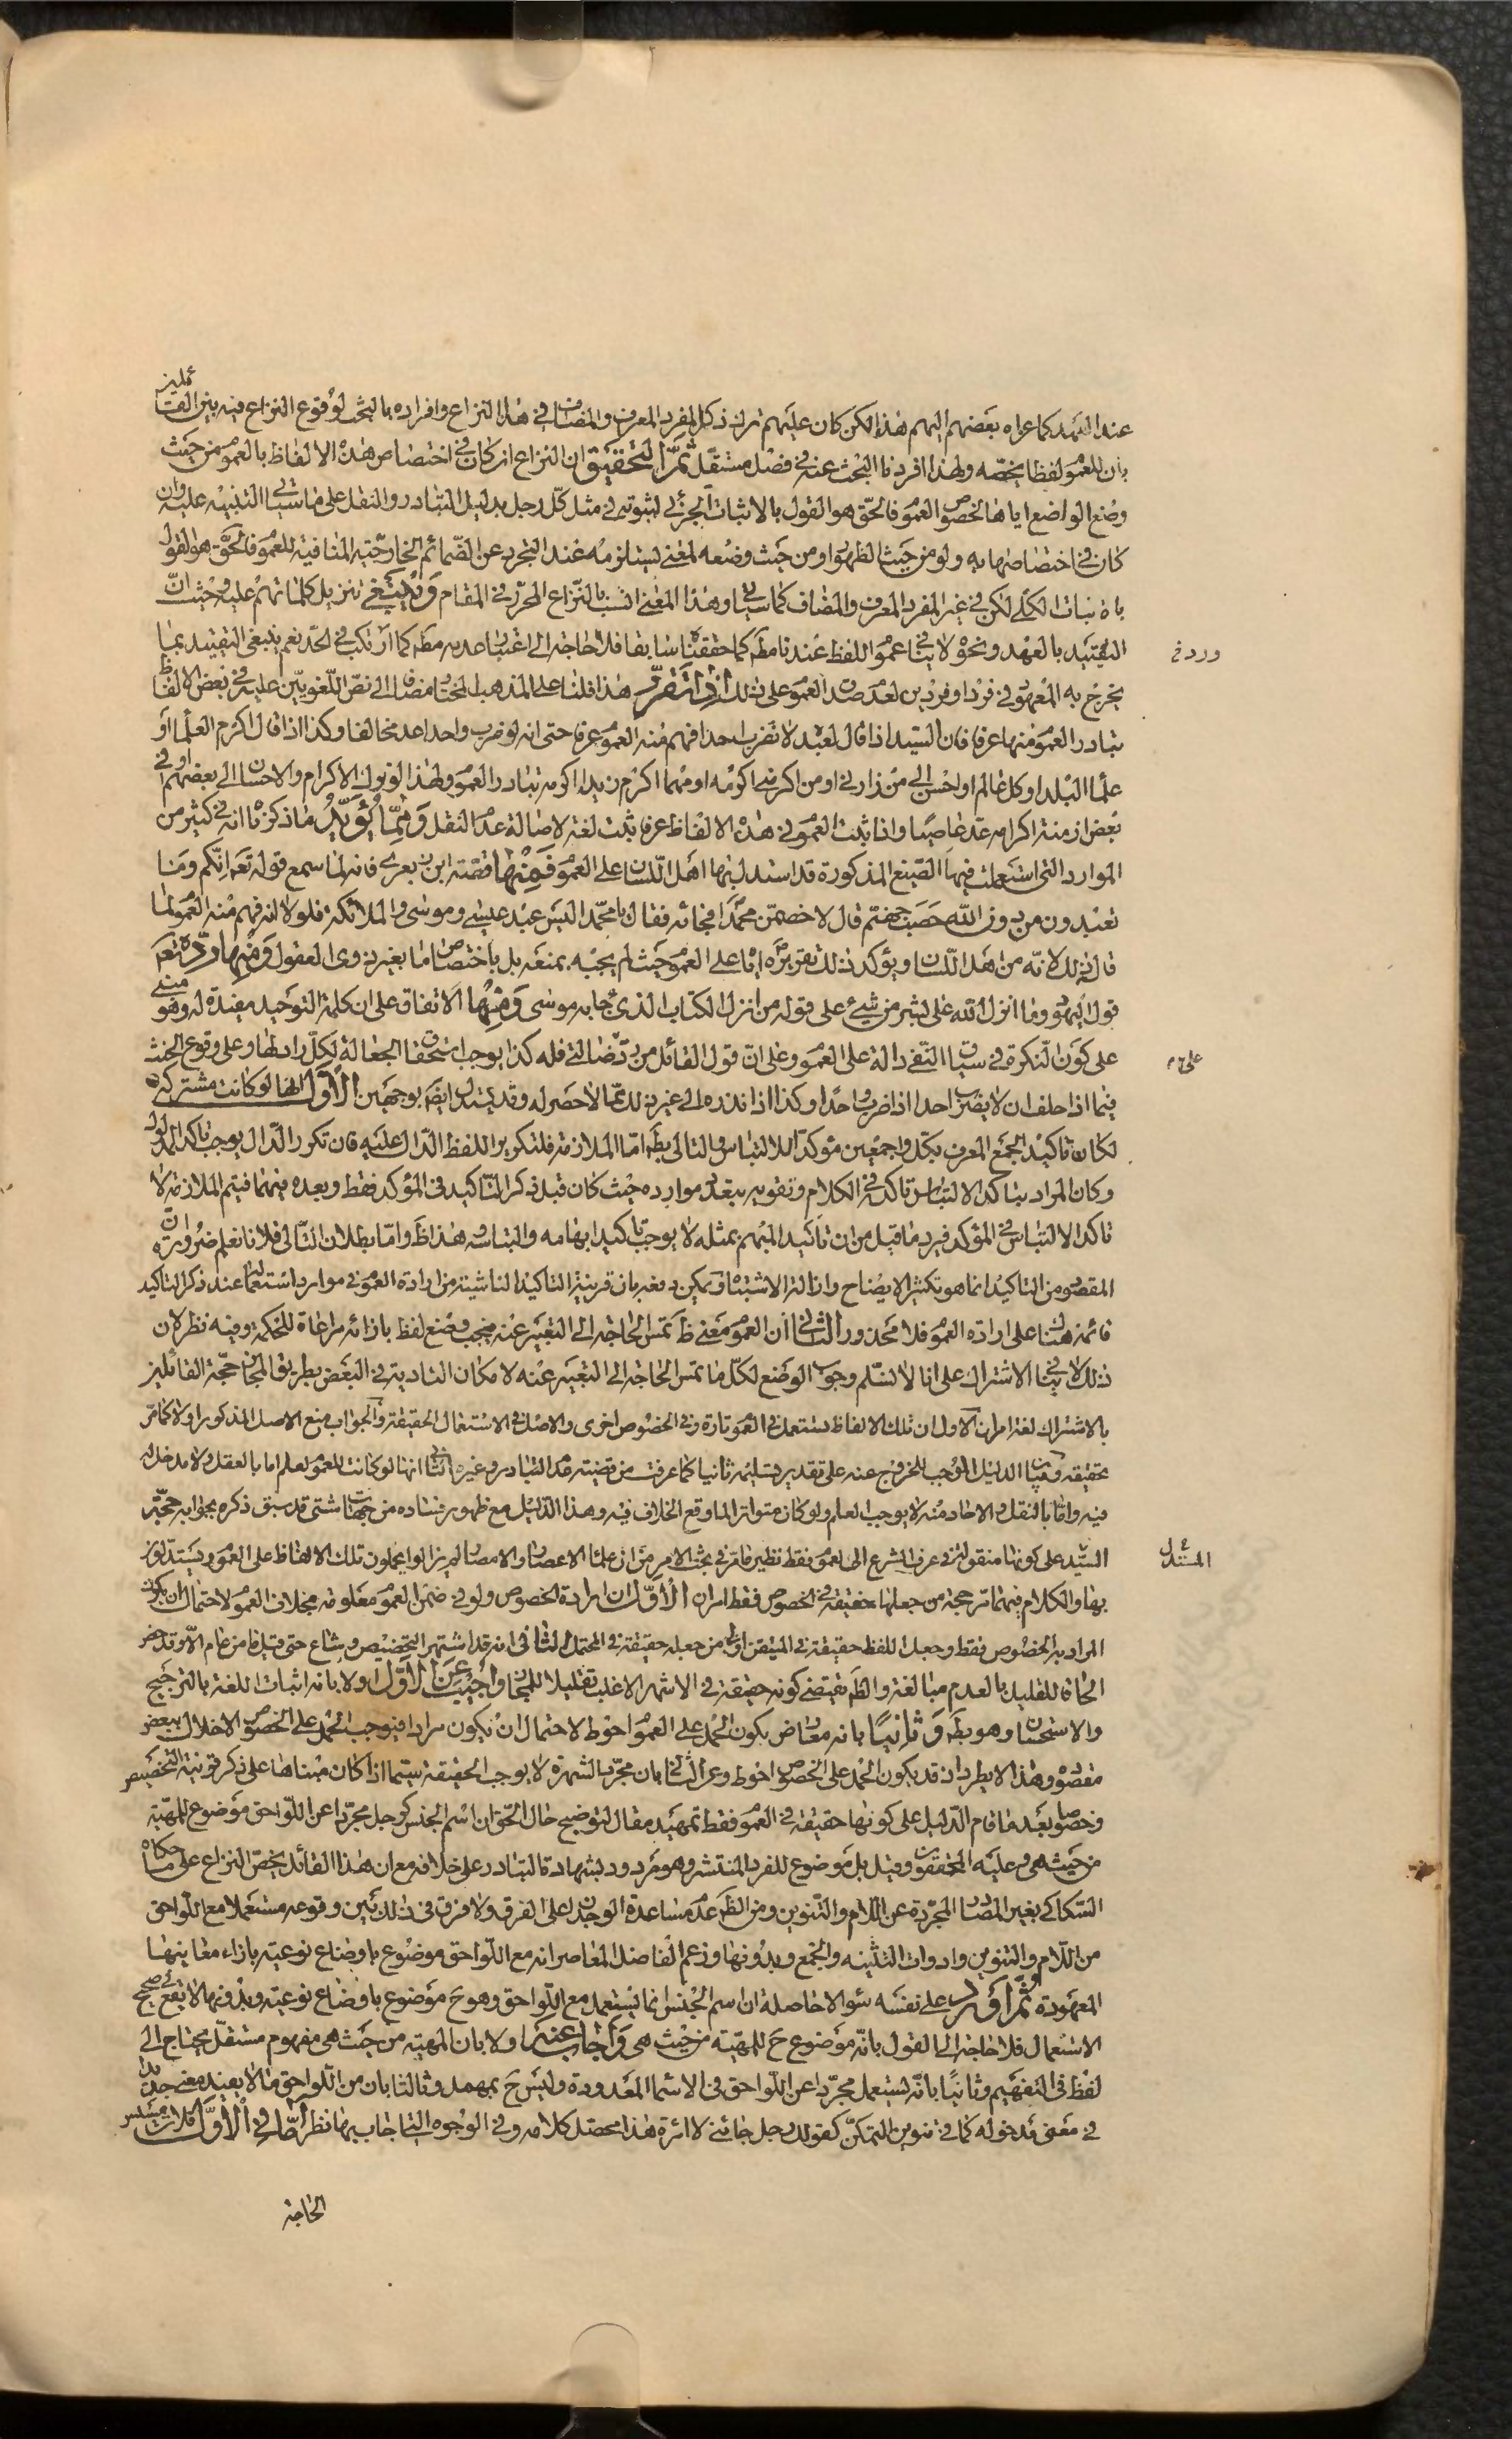 عند التجرد كما عزاه بعضهم اليهم هذا لكن كان عليهم ترك ذكر المفرد المعرف والمضاف في هذا النزاع وافراده بالبحث لوقوع النزاع فيه بين القائلين
بان للعموم لفظا يخصه ولهذا افردنا البحث عنه في فصل مستقل ثم التحقيق ان النزاع ان كان في اختصاص هذه الالفاظ بالعموم من حيث
وضع الواضع اياها لخصوص العموم فالحق هو القول بالاثبات الجزئي لثبوته في مثل كل رجل بدليل التبادر والنقل على ما سياتي التنبيه عليه وان
كان في اختصاصها به ولو من حيث الظهور او من حيث وضعه لمعنى يستلزمه عند التجرد عن الضمائم الخارجية المنافية للعموم فالحق هو القول
بالاثبات الكلي لكن في غير المفرد المعرف والمضاف كما سياتي وهذا المعنى انسب بالنزاع المحرر في المقام وينبغي تنزيل كلماتهم عليه وحيث ان
التقييد بالعهد ونحوه لا ينافي عموم اللفظ عندنا مط كما حققناه سابقا فلا حاجة الى اعتبار عدمه مط كما ارتكب في الحد نعم ينبغي التقييد بما
ورد في
يخرج به المعهود في فرد او فردين لعدم صدق العموم على ذلك اذا تقرر هذا فلنا على المذهب المختار مضافا الى نص اللغويين عليه في بعض الالفاظ
تبادر العموم منها عرفا فان السيد اذا قال لعبده لا تضرب احدا فهم منه العموم عرفا حتى انه لو ضرب واحدا عد مخالفا وكذا اذا قال اكرم العلماء او
علماء البلد او كل عالم او احسن الى من زارني او من اكرمني اكرمه او مهما اكرم زيدا اكرمه تبادر العموم ولهذا لو ترك الاكرام والاحسان الى بعضهم او في
بعض ازمنة اكرامه عد عاصيا واذا ثبت العموم في هذه الالفاظ عرفا ثبت لغة لاصالة عدم النقل ومما يؤيد ما ذكرناه انه في كثير من
الموارد التي استعملت فيها الصيغ المذكورة قد استدل بها اهل اللسان على العموم فمنها قصة ابن الزبعرى فانه لما سمع قوله تعم انكم وما
تعبدون من دون الله حصب جهنم قال لاخصمن محمدا فجائه فقال يا محمد اليس عبد عيسى وموسى والملائكة فلولا انه فهم منه العموم لما
قال ذلك لانه من اهل اللسان ويؤكد ذلك تقريره ايانا على العموم حيث لم يجبه بمنعه بل باختصاص ما بغير ذوي العقول ومنها رده تعم
قول اليهود وما انزل الله على بشر من شيء على قوله من انزل الكتاب الذي جاء به موسى ومنها الاتفاق على ان كلمة التوحيد مفيدة له وهو مبني
على كون النكرة في سياق النفي دالة على العموم وعلى ان قول القائل من رد ضالتي فله كذا يوجب استحقاق الجعالة لكل رادلها وعلى وقوع الحنث
على م
فيما اذا حلف ان لا يضرب احدا اذا ضرب واحدا وكذا اذا نذره الى غير ذلك مما لا حصر له وقد يستدل ايضا بوجهين الاول انها لو كانت مشتركة
لكان تاكيد الجمع المعرف بكل واجمعين مؤكدا للالتباس والتالي بط اما الملازمة فلتكرير اللفظ الدال عليه فان تكرر الدال يوجب تاكد المدلول
وكان المراد بتاكد الالتباس تاكده في الكلام وتقويه بتعدد موارده حيث كان قبل ذكر التاكيد في المؤكد فقط وبعده فيهما فيتم الملازمة لا
تاكد الالتباس في المؤكد فيرد ما قيل من ان تاكيد المبهم بمثله لا يوجب تاكيد ابهامه والتباسه هذا ظ واما بطلان التالي فلانا نعلم ضرورة ان
المقصود من التاكيد انما هو تكثير الايضاح وازالة الاشتباه ويمكن دفعه بان قرينة التاكيد الناشية من ارادة العموم في موارد استعمالها عند ذكر التاكيد
قائمة هناك على ارادة العموم فلا محذور الثاني ان العموم معنى ظ تمس الحاجة الى التعبير عنه فيجب وضع لفظ بازائه مراعاة للحكمة وفيه نظر لان
ذلك لا ينافي الاشتراك على انا لا نسلم وجوب الوضع لكل ما تمس الحاجة الى التعبير عنه لامكان التادية في البعض بطريق المجاز حجة القائلين
بالاشتراك لغة امران الاول ان تلك الالفاظ تستعمل في العموم تارة وفي الخصوص اخرى والاصل في الاستعمال الحقيقة والجواب منع الاصل المذكور اولا كما مر
تحقيقه وقيام الدليل الموجب للخروج عنه على تقدير تسليمه ثانيا كما عرفت من قضية عدم التبادر وغيره الثاني انها لو كانت للعموم لعلم اما بالعقل ولا مدخل له
فيه واما بالنقل والاحاد منه لا يوجب العلم ولو كان متواترا لما وقع الخلاف فيه وهذا الدليل مع ظهور فساده من جهات شتى قد سبق ذكره بجوابه حجة
السيد على كونها منقولة في عرف الشرع الى العموم فقط نظير ما مر في بحث الامر من ان علماء الاعصار والامصار لم يزالوا يحملون تلك الالفاظ على العموم ويستدلون
المستدل
بها والكلام فيهما مر حجة من جعلها حقيقة في الخصوص فقط امران الاول ان ارادة الخصوص ولو في ضمن العموم معلومة بخلاف العموم لاحتمال ان يكون
المراد به الخصوص فقط وجعل اللفظ حقيقة في المتيقن اولى من جعله حقيقة في المحتمل الثاني انه قد اشتهر التخصيص وشاع حتى قيل ما من عام الا وقد خص
الحاقا للقليل بالعدم مبالغة والظ يقتضي كونه حقيقة في الاشهر الاغلب تقليلا للمجاز واجيب عن الاول اولا بانه اثبات اللغة بالترجيح
والاستحسان وهو بط وثانيا بانه معارض بكون الحمل على العموم احوط لاحتمال ان يكون مرادا فيوجب الحمل على الخصوص الاخلال ببعض
مقصوده وهذا لا يطرد اذ قد يكون الحمل على الخصوص احوط وعن الثاني بان مجرد الشهرة لا يوجب الحقيقة سيما اذا كان مبناها على ذكر قرينة التخصيص
وخصوصا بعد ما قام الدليل على كونها حقيقة في العموم فقط تمهيد مقال لتوضيح حال الحق ان اسم الجنس كرجل مجردا عن اللواحق موضوع للمهية
من حيث هي وعليه المحققون وقيل بل موضوع للفرد المنتشر وهو مردود بشهادة التبادر على خلافه مع ان هذا القائل يخص النزاع على ما حكاه
السكاكي بغير المصادر المجردة عن اللام والتنوين ومن الظ عدم مساعدة الوجدان على الفرق ولا فرق في ذلك بين وقوعه مستعملا مع اللواحق
من اللام والتنوين وادوات التثنية والجمع وبدونها وزعم الفاضل المعاصر انه مع اللواحق موضوع باوضاع نوعية بازاء معانيها
المعهودة ثم اورد على نفسه سؤالا حاصله ان اسم الجنس انما يستعمل مع اللواحق وهو ح موضوع باوضاع نوعية وبدونها لا يقع في صحيح
الاستعمال فلا حاجة الى القول بانه موضوع ح للمهية من حيث هي واجاب عنه اولا بان المهية من حيث هي مفهوم مستقل يحتاج الى
لفظ في التفهيم وثانيا بانه يستعمل مجردا عن اللواحق في الاسماء المعدودة وليس ح بمهمل وثالثا بان من اللواحق ما لا يفيد معنى جديدا
في معنى مدخوله كما في تنوين التمكن كقولك رجل جائني لا امرءة هذا محصل كلامه وفي الوجوه التي اجاب بها نظر اما في الاول فلان مساس
الحاجة